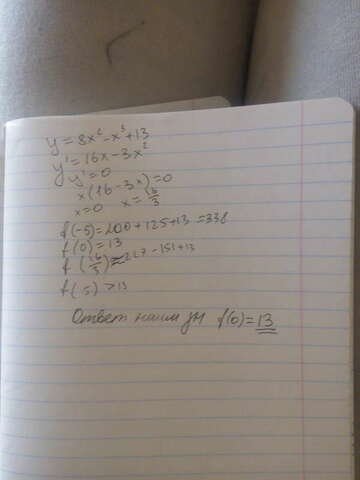 y = 8x² - x³ + 13
y' = 16x - 3x²
y' = 0
x(16 - 3x) = 0
x = 0 x = 16/3
f(-5) = 200 + 125 + 13 = 338
f(0) = 13
f(16/3) ≈ 227 - 151 + 13
f(5) > 13
Ответ наим зн f(0) = 13